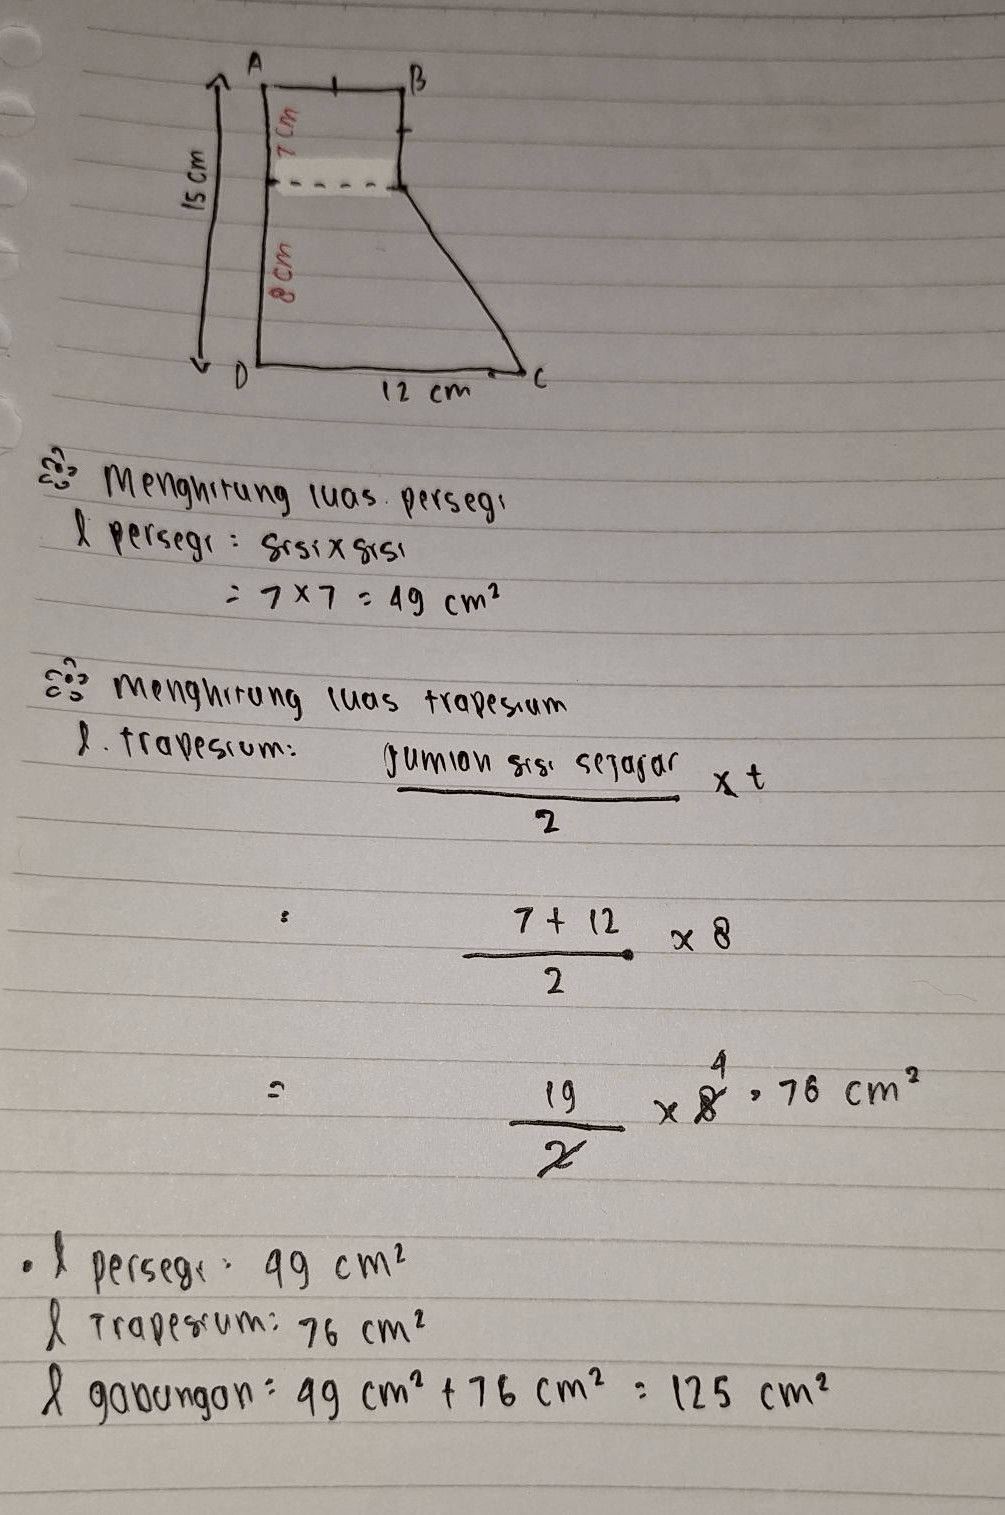 A
B
7 cm
15 cm
8 cm
D
12 cm
C
Menghitung luas persegi
L persegi = sisi x sisi
= 7 x 7 = 49 cm²
Menghitung luas trapesium
L. trapesium: Jumlah sisi sejajar / 2 x t
: 7 + 12 / 2 x 8
= 19 / 2 x 8 4 = 76 cm²
• L persegi = 49 cm²
L Trapesium: 76 cm²
L gabungan = 49 cm² + 76 cm² = 125 cm²